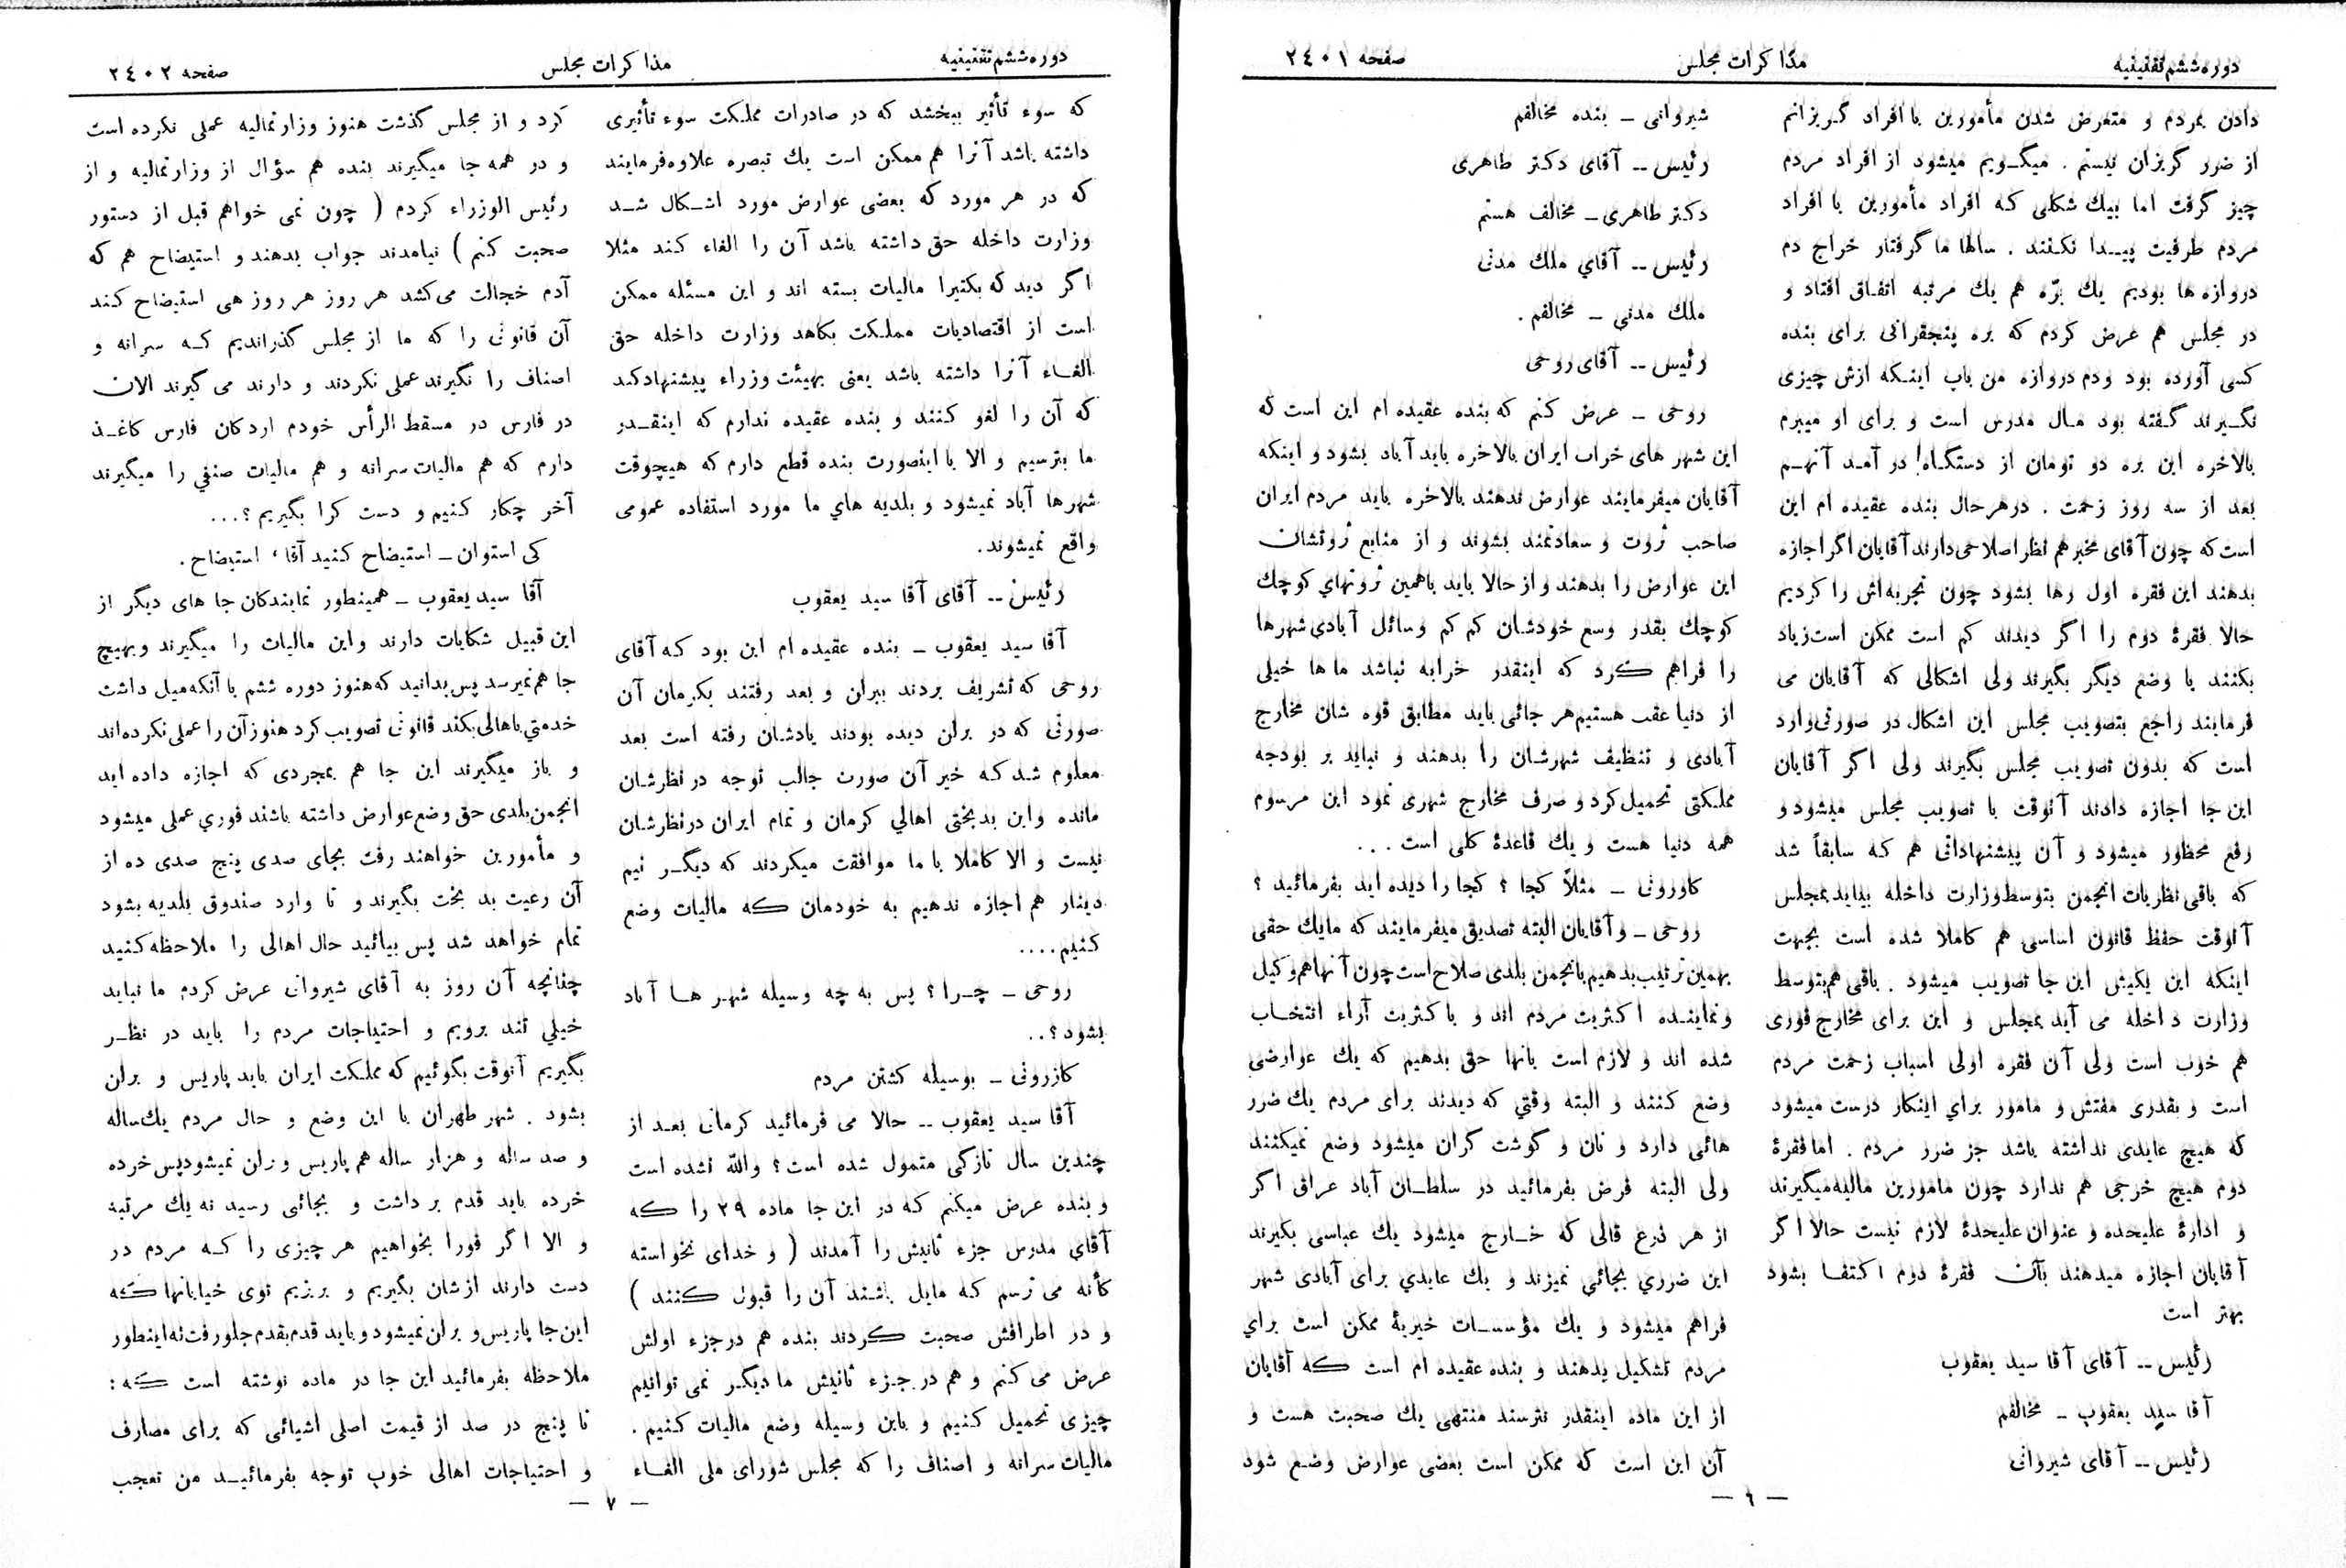 دوره ششم تقنینیه
مذاکرات مجلس
صفحه ۲٤۰۱
دادن بمردم و متعرض شدن مأمورین با افراد گریزانم
از ضرر گریزان نیستم . میگویم میشود از افراد مردم
چیز گرفت اما بیك شکلی که افراد مأمورین با افراد
مردم طرفیت پیدا نکنند . سالها ما گرفتار خراج دم
دروازه ها بودیم یك برّه هم یك مرتبه اتفاق افتاد و
در مجلس هم عرض کردم که بره پنجقرانی برای بنده
کسی آورده بود ودم دروازه من باب اینکه ازش چیزی
نگیرند گفته بود مال مدرس است و برای او میبرم
بالاخره این بره دو تومان از دستگاه در آمد آنهم
بعد از سه روز زحمت . درهرحال بنده عقیده ام این
است که چون آقای مخبر هم نظر اصلاحی دارند آقایان اگر اجازه
بدهند این فقره اول رها بشود چون تجربه‌اش را کردیم
حالا فقرهٔ دوم را اگر دیدند کم است ممکن است زیاد
بکنند یا وضع دیگر بگیرند ولی اشکالی که آقایان می
فرمایند راجع بتصویب مجلس این اشکال در صورتی وارد
است که بدون تصویب مجلس بگیرند ولی اگر آقایان
این جا اجازه دادند آنوقت با تصویب مجلس میشود و
رفع محظور میشود و آن پیشنهاداتی هم که سابقاً شد
که باقی نظریات انجمن بتوسط وزارت داخله بیاید بمجلس
آنوقت حفظ قانون اساسی هم کاملا شده است بجهت
اینکه این یکیش این جا تصویب میشود . باقی هم بتوسط
وزارت داخله می آید بمجلس و این برای مخارج فوری
هم خوب است ولی آن فقره اولی اسباب زحمت مردم
است و بقدری مفتش و مامور برای اینکار درست میشود
که هیچ عایدی نداشته باشد جز ضرر مردم . اما فقرهٔ
دوم هیچ خرجی هم ندارد چون مامورین مالیه میگیرند
و ادارهٔ علیحده و عنوان علیحدهٔ لازم نیست حالا اگر
آقایان اجازه میدهند بآن فقرهٔ دوم اکتفا بشود
بهتر است
رئیس -- آقای آقا سید یعقوب
آقا سید یعقوب - مخالفم
رئیس -- آقای شیروانی
شیروانی - بنده مخالفم
رئیس -- آقای دکتر طاهری
دکتر طاهری - مخالف هستم
رئیس -- آقاي ملك مدنی
ملك مدنی - مخالفم .
رئیس -- آقای روحی
روحی - عرض کنم که بنده عقیده ام این است که
این شهر های خراب ایران بالاخره باید آباد بشود و اینکه
آقایان میفرمایند عوارض ندهند بالاخره باید مردم ایران
صاحب ثروت و سعادتمند بشوند و از منابع ثروتشان
این عوارض را بدهند و از حالا باید باهمین ثروتهاي کوچك
کوچك بقدر وسع خودشان کم کم وسائل آبادی شهرها
را فراهم کرد که اینقدر خرابه نباشد ماها خیلی
از دنیا عقب هستیم هر جائی باید مطابق قوه شان مخارج
آبادی و تنظیف شهرشان را بدهند و نباید بر بودجه
مملکتی تحمیل کرد و صرف مخارج شهری نمود این مرسوم
همه دنیا هست و یك قاعدهٔ کلی است ...
کازرونی - مثلاً کجا ؟ کجا را دیده اید بفرمائید ؟
روحی - و آقایان البته تصدیق میفرمایند که مایك حقی
بهمین ترتیب بدهیم بانجمن بلدی صلاح است چون آنها هم وکیل
و نماینده اکثریت مردم اند و با کثریت آراء انتخاب
شده اند و لازم است بانها حق بدهیم که یك عوارضی
وضع کنند و البته وقتي که دیدند برای مردم یك ضرر
هائی دارد و نان و گوشت گران میشود وضع نمیکنند
ولی البته فرض بفرمائید در سلطان آباد عراق اگر
از هر ذرع قالی که خارج میشود یك عباسی بگیرند
این ضرري بجائي نمیزند و یك عایدي برای آبادی شهر
فراهم میشود و یك مؤسسات خیریهٔ ممکن است براي
مردم تشکیل بدهند و بنده عقیده ام است که آقایان
از این ماده اینقدر نترسند منتهی یك صحبت هست و
آن این است که ممکن است بعضی عوارض وضع شود
— ٦ —
دوره ششم تقنینیه
مذاکرات مجلس
صفحه ۲٤۰۲
که سوء تأثیر ببخشد که در صادرات مملکت سوء تأثیری
داشته باشد آنرا هم ممکن است یك تبصره علاوه فرمایند
که در هر مورد که بعضی عوارض مورد اشکال شد
وزارت داخله حق داشته باشد آن را الغاء کند مثلا
اگر دید که بکتیرا مالیات بسته اند و این مسئله ممکن
است از اقتصادیات مملکت بکاهد وزارت داخله حق
الغاء آنرا داشته باشد یعنی بهیئت وزراء پیشنهاد کند
که آن را لغو کنند و بنده عقیده ندارم که اینقدر
ما بترسیم و الا با اینصورت بنده قطع دارم که هیچوقت
شهرها آباد نمیشود و بلدیه هاي ما مورد استفاده عمومی
واقع نمیشوند.
رئیس -- آقای آقا سید یعقوب
آقا سید یعقوب - بنده عقیده ام این بود که آقای
روحی که تشریف بردند ببران و بعد رفتند بکرمان آن
صورتی که در برلن دیده بودند یادشان رفته است بعد
معلوم شد که خیر آن صورت جالب توجه در نظرشان
مانده و این بدبختی اهالي کرمان و تمام ایران در نظرشان
نیست و الا کاملا با ما موافقت میکردند که دیگر نیم
دینار هم اجازه ندهیم به خودمان که مالیات وضع
کنیم....
روحی - چرا ؟ پس به چه وسیله شهر ها آباد
بشود؟..
کازرونی - بوسیله کشتن مردم
آقا سید یعقوب -- حالا می فرمائید کرمانی بعد از
چندین سال تازگی متمول شده است؟ والله نشده است
و بنده عرض میکنم که در این جا ماده ۲۹ را که
آقاي مدرس جزء ثانیش را آمدند ( و خدای نخواسته
کأنه می ترسم که مایل باشند آن را قبول کنند )
و در اطرافش صحبت کردند بنده هم در جزء اولش
عرض می کنم و هم در جزء ثانیش ما دیگر نمی توانیم
چیزی تحمیل کنیم و باین وسیله وضع مالیات کنیم .
مالیات سرانه و اصناف را که مجلس شورای ملی الغاء
کرد و از مجلس گذشت هنوز وزارتمالیه عملی نکرده است
و در همه جا میگیرند بنده هم سؤال از وزارتمالیه و از
رئیس الوزراء کردم ( چون نمی خواهم قبل از دستور
صحبت کنم ) نیامدند جواب بدهند و استیضاح هم که
آدم خجالت می‌کشد هر روز هر روز هی استیضاح کند
آن قانونی را که ما از مجلس گذراندیم که سرانه و
اصناف را نگیرند عملی نکردند و دارند می گیرند الان
در فارس در مسقط الرأس خودم اردکان فارس کاغذ
دارم که هم مالیات سرانه و هم مالیات صنفي را میگیرند
آخر چکار کنیم و دست کرا بگیریم ؟...
کی استوان - استیضاح کنید آقا ، استیضاح .
آقا سید یعقوب - همینطور نمایندگان جا های دیگر از
این قبیل شکایات دارند و این مالیات را میگیرند و بهیچ
جا هم نمیرسد پس بدانید که هنوز دوره ششم با آنکه میل داشت
خدمتي باهالی بکند قانونی تصویب کرد هنوز آن را عملی نکرده اند
و باز میگیرند این جا هم بمجردی که اجازه داده اید
انجمن بلدی حق وضع عوارض داشته باشند فوري عملی میشود
و مأمورین خواهند رفت بجای صدی پنج صدی ده از
آن رعیت بد بخت بگیرند و تا وارد صندوق بلدیه بشود
تمام خواهد شد پس بیائید حال اهالی را ملاحظه کنید
چنانچه آن روز به آقای شیروانی عرض کردم ما نباید
خیلي تند برویم و احتیاجات مردم را باید در نظر
بگیریم آنوقت بگوئیم که مملکت ایران باید پاریس و برلن
بشود . شهر طهران با این وضع و حال مردم یك ساله
و صد ساله و هزار ساله هم پاریس و برلن نمیشود پس خرده
خرده باید قدم بر داشت و بجائی رسید نه یك مرتبه
و الا اگر فورا بخواهیم هر چیزی را که مردم در
دست دارند ازشان بگیریم و بریزیم توی خیابانها که
این جا پاریس و برلن نمیشود و باید قدم بقدم جلو رفت نه اینطور
ملاحظه بفرمائید این جا در ماده نوشته است که :
تا پنج در صد از قیمت اصلی اشیائی که برای مصارف
و احتیاجات اهالی خوب توجه بفرمائید من تعجب
— ۷ —